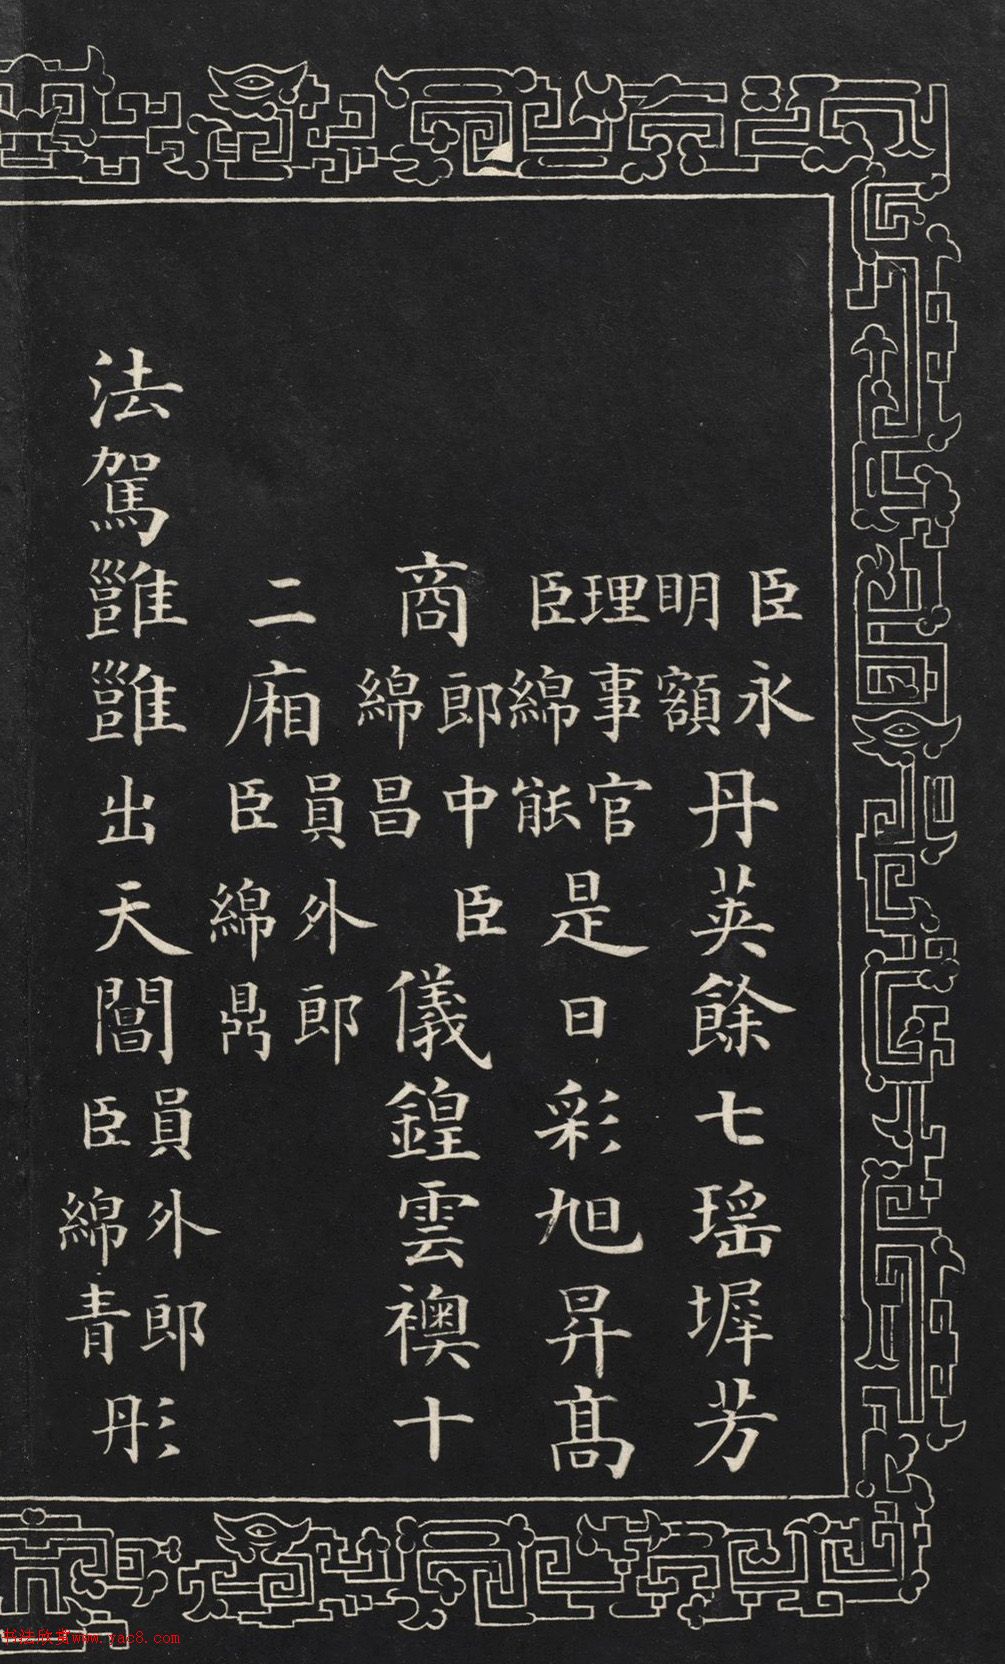 臣永明額丹莢餘七瑤墀芳
理事官臣綿䏻是日彩旭昇高
商郎中臣綿昌儀鍠雲襖十
二廂員外郎臣綿鼎
法駕雝雝出天閶員外郎臣綿青彤
书法欣赏www.yac8.com